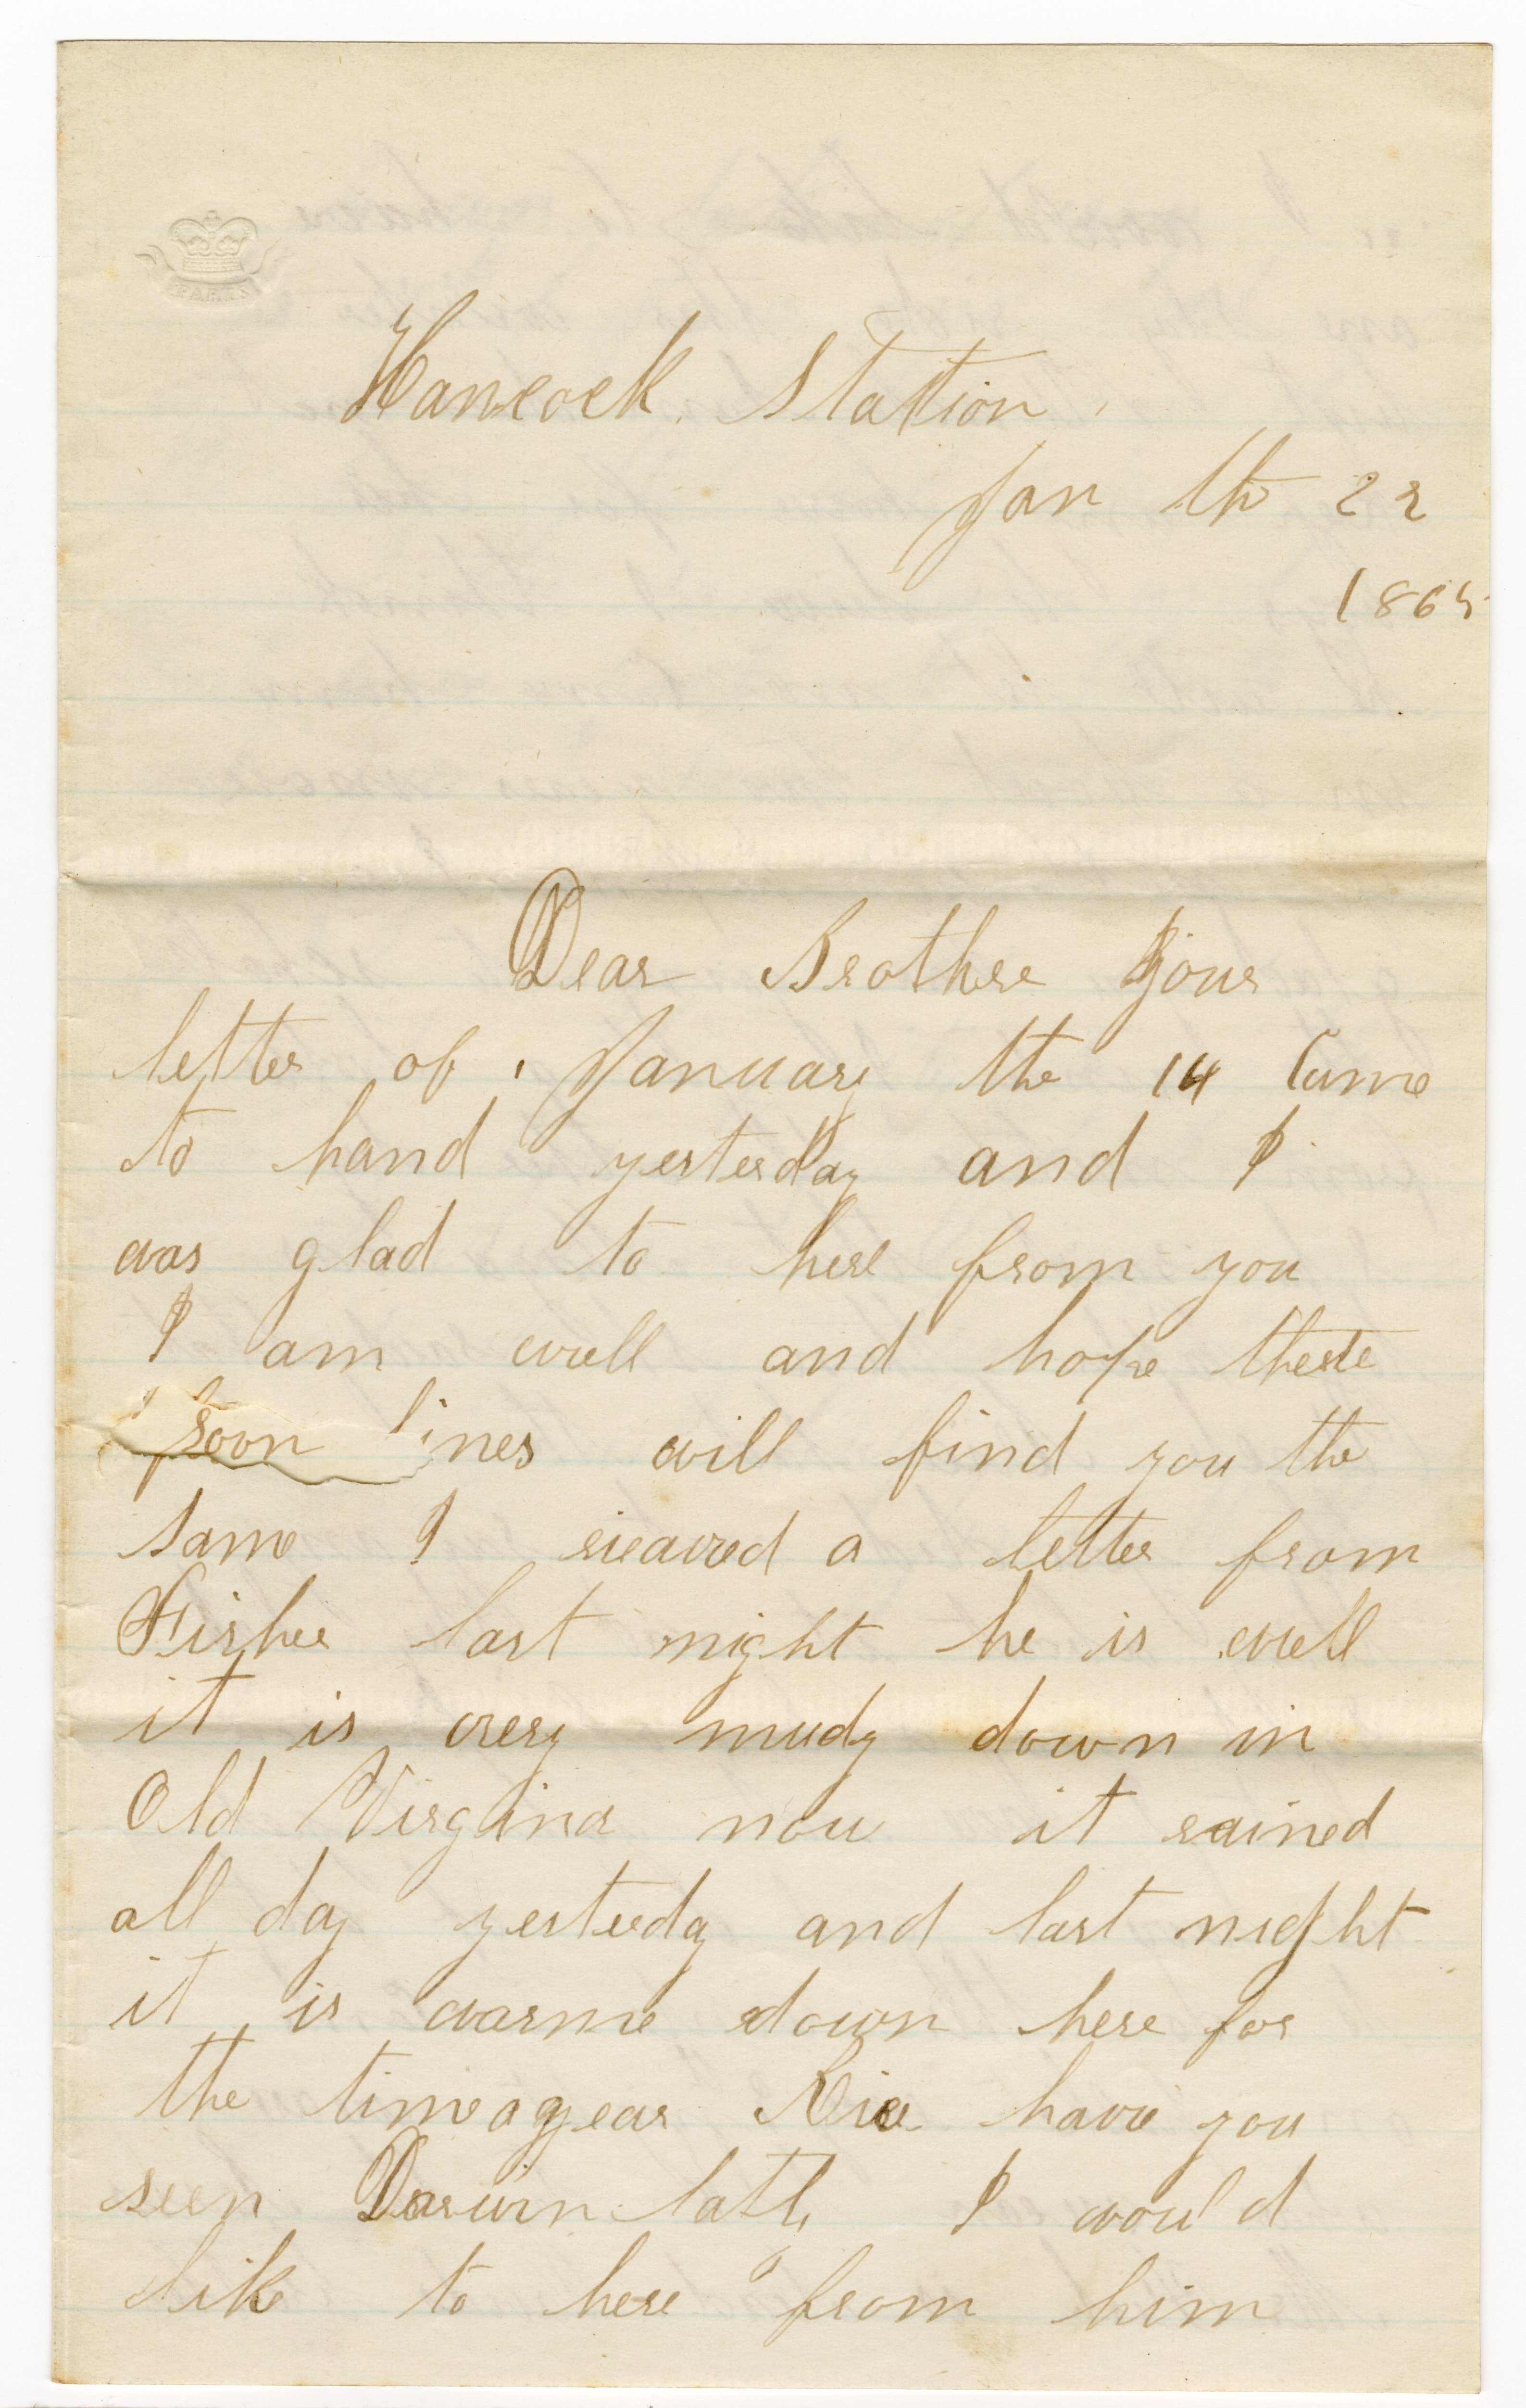 PARIS
Hancock. Station
Jan th 22
1865
Dear Brothere Your
letter of January the 14 Came
to hand yesterday and I
was glad to here from you
I am well and hope these
poor lines will find you the
same I rieaived a letter from
Fisher last night he is well
it is very mudy down in
Old Virgina now it rained
all day yesterday and last night
it is warme down here for
the time a year have you
seen Darwin lately I would
like to here from him